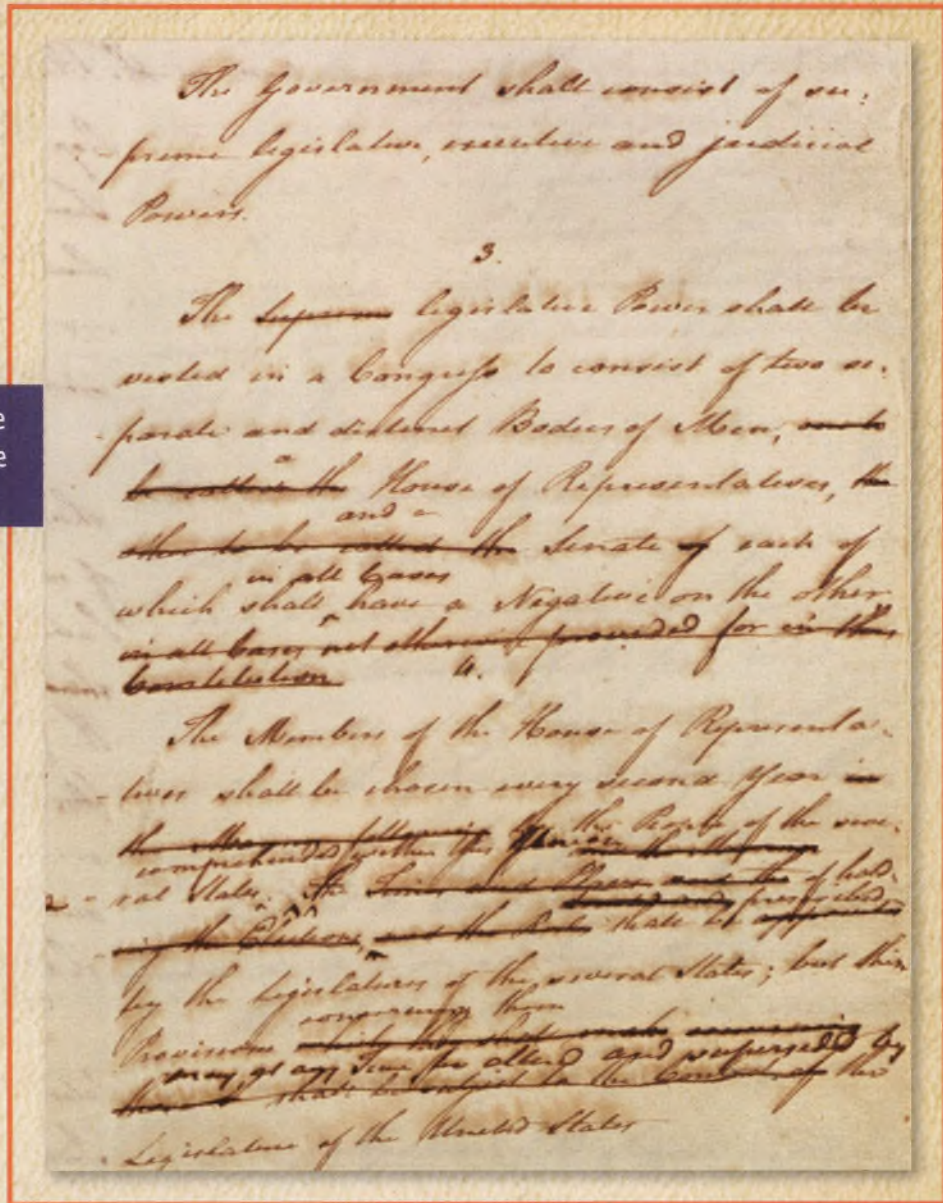 The Government shall consist of su:
preme legislative, executive and judicial
Powers.
3.
The supreme legislative Power shall be
vested in a Congress to consist of two se:
parate and distinct Bodies of Men, one to
a
be called the House of Representatives, the
and a
other to be called the Senate of each of
in all Cases
which shall have a Negative on the other
in all Cases not otherwise provided for in this
Constitution
4.
The Members of the House of Representa-
tives shall be chosen every second Year in
the manner following by the People of the seve-
comprehended within this Union
ral States. The Times and Places and the of hold-
prescribed
ing the Elections, and the shall be appointed
by the Legislatures of the several States; but their
concerning them
Provisions which they shall make concerning
may, at any Time be altered and superseded by
shall be subject to the Control of the
Legislature of the United States